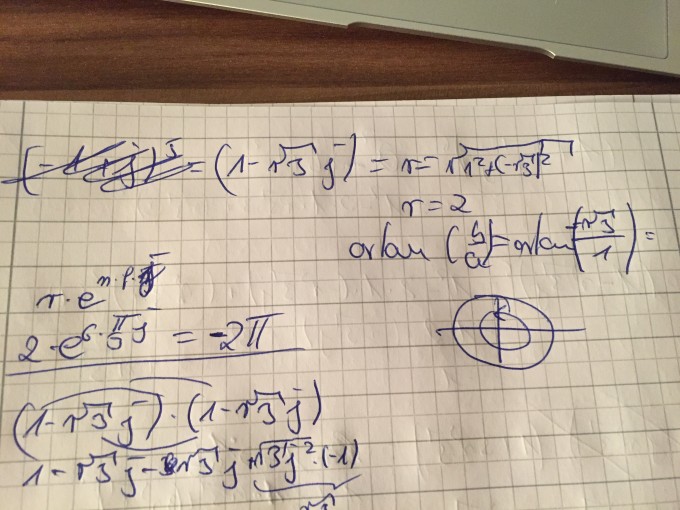 = (1-√3 j) = r = √1²+(-√3)²
r = 2
arctan (b/a) = arctan (-√3/1) =
r·e
2·e = -2π
(1-√3 j)·(1-√3 j)
1-√3 j - √3 j + √3 j²·(-1)